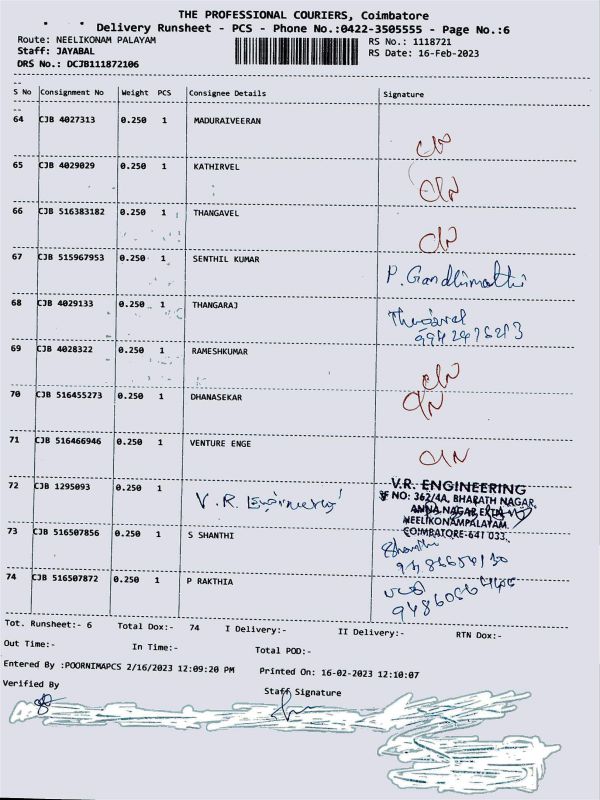 THE PROFESSIONAL COURIERS, Coimbatore
Delivery Runsheet - PCS - Phone No.:0422-3505555 - Page No.:6
Route: NEELIKONAM PALAYAM
RS No.: 1118721
Staff: JAYABAL
RS Date: 16-Feb-2023
DRS No.: DCJB111872106
S No Consignment No Weight PCS Consignee Details Signature
64 CJB 4027313 0.250 1 MADURAIVEERAN
65 CJB 4029029 0.250 1 KATHIRVEL
66 CJB 516383182 0.250 1 THANGAVEL
67 CJB 515967953 0.250 1 SENTHIL KUMAR
P. Gandhimathi
68 CJB 4029133 0.250 1 THANGARAJ
69 CJB 4028322 0.250 1 RAMESHKUMAR
70 CJB 516455273 0.250 1 DHANASEKAR
71 CJB 516466946 0.250 1 VENTURE ENGE
72 CJB 1295093 0.250 1 V.R. Engineering
V.R. ENGINEERING
SF NO: 362/4A, BHARATH NAGAR
ANNA NAGAR EXTN
NEELIKONAMPALAYAM,
COIMBATORE-641 033.
73 CJB 516507856 0.250 1 S SHANTHI
Shanthi
74 CJB 516507872 0.250 1 P RAKTHIA
Tot. Runsheet:- 6 Total Dox:- 74 I Delivery:- II Delivery:- RTN Dox:-
Out Time:- In Time:- Total POD:-
Entered By :POORNIMAPCS 2/16/2023 12:09:20 PM Printed On: 16-02-2023 12:10:07
Verified By Staff Signature